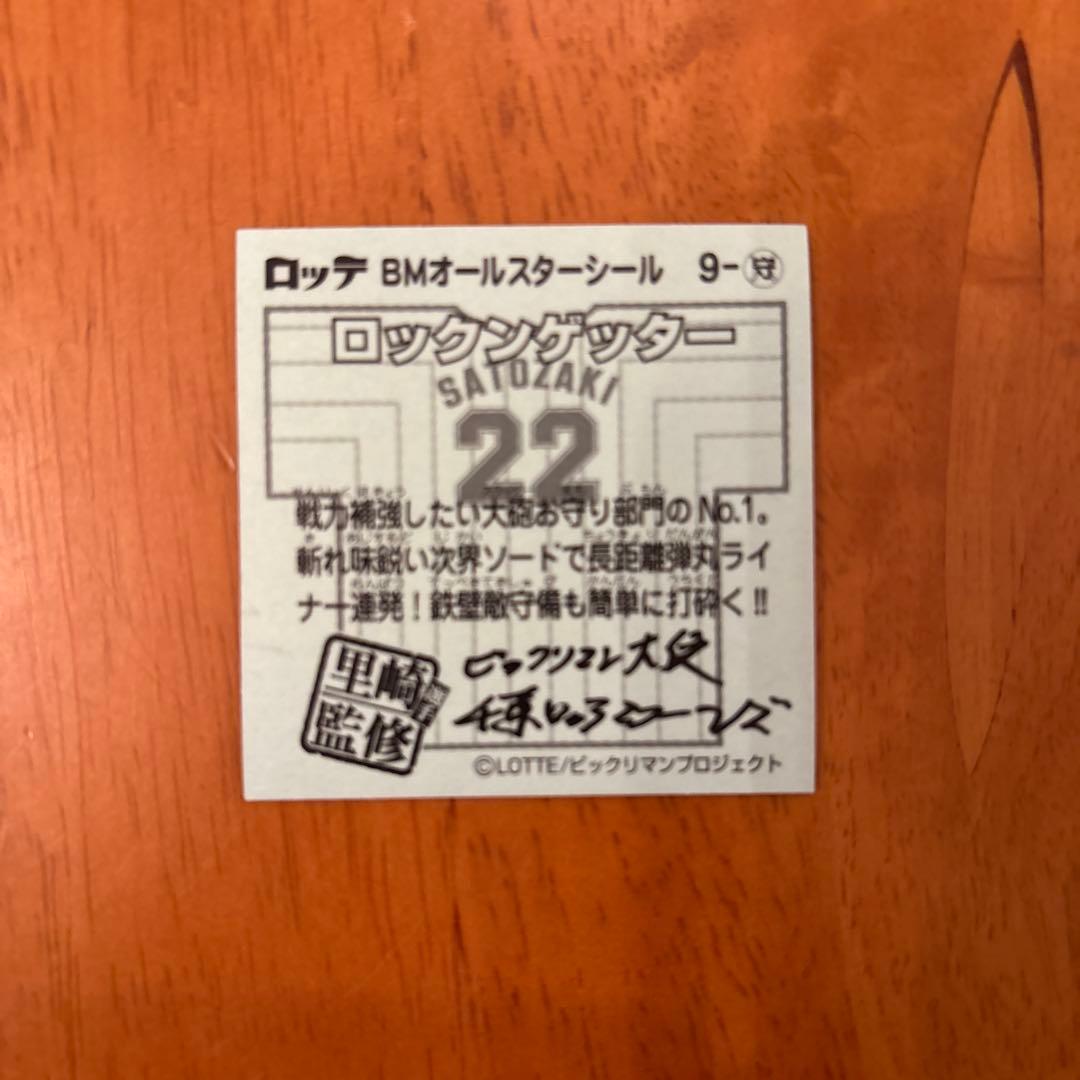 ロッテ BMオールスターシール 9-守
ロックンゲッター
SATOZAKI
22
戦力補強したい大砲お守り部門のNo.1。
斬れ味鋭い次界ソードで長距離弾丸ライ
ナー連発!鉄壁敵守備も簡単に打砕く!!
里崎
監修
©LOTTE/ビックリマンプロジェクト